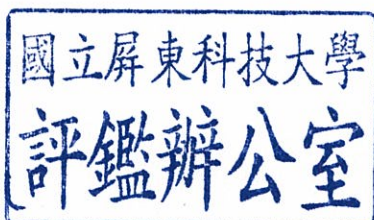 國立屏東科技大學
評鑑辦公室